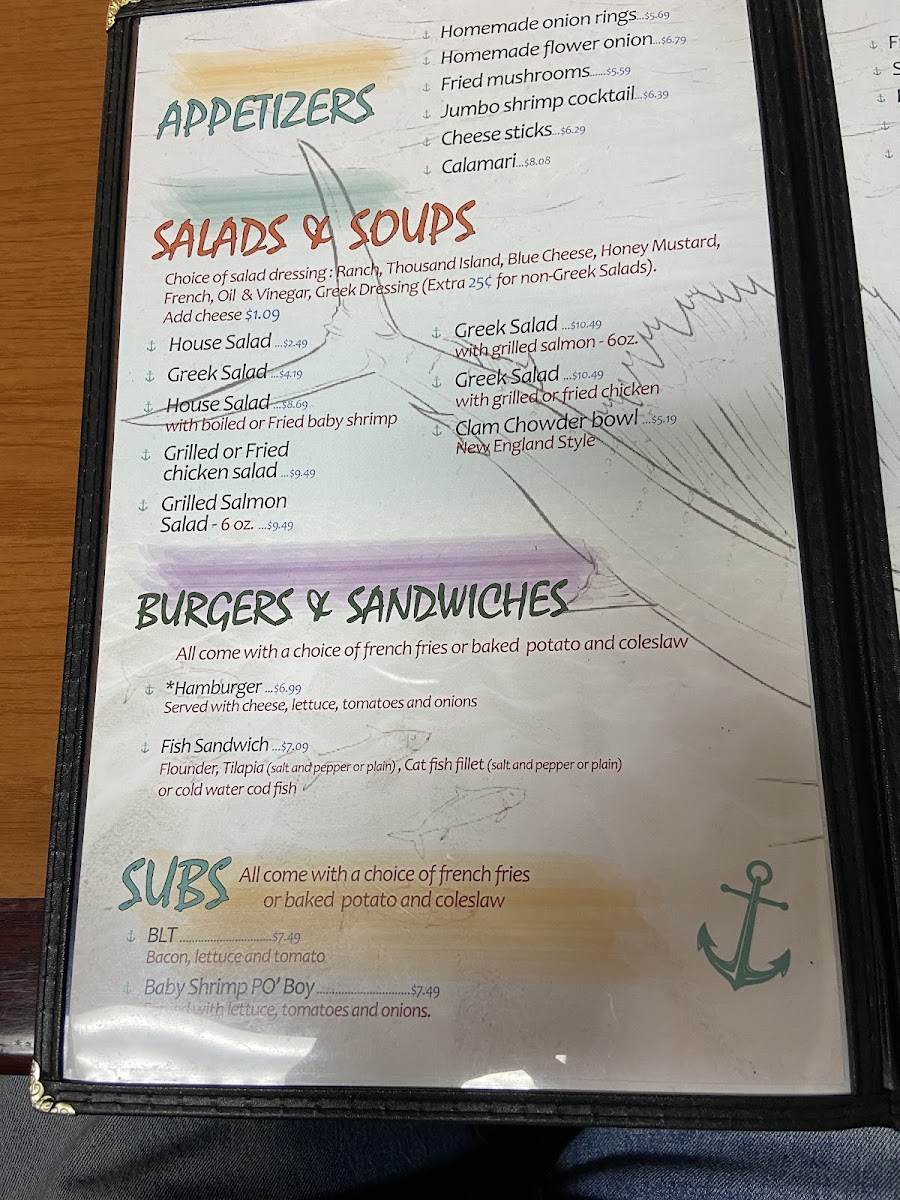 APPETIZERS
Homemade onion rings...$5.69
Homemade flower onion...$6.79
Fried mushrooms......$5.59
Jumbo shrimp cocktail...$6.39
Cheese sticks...$6.29
Calamari...$8.08
SALADS & SOUPS
Choice of salad dressing : Ranch, Thousand Island, Blue Cheese, Honey Mustard,
French, Oil & Vinegar, Greek Dressing (Extra 25¢ for non-Greek Salads).
Add cheese $1.09
House Salad ...$2.49
Greek Salad ...$4.19
House Salad ...$8.69
with boiled or Fried baby shrimp
Grilled or Fried
chicken salad ...$9.49
Grilled Salmon
Salad - 6 oz. ...$9.49
Greek Salad ...$10.49
with grilled salmon - 6oz.
Greek Salad ...$10.49
with grilled or fried chicken
Clam Chowder bowl ...$5.19
New England Style
BURGERS & SANDWICHES
All come with a choice of french fries or baked potato and coleslaw
*Hamburger ...$6.99
Served with cheese, lettuce, tomatoes and onions
Fish Sandwich ...$7.09
Flounder, Tilapia (salt and pepper or plain) , Cat fish fillet (salt and pepper or plain)
or cold water cod fish
SUBS
All come with a choice of french fries
or baked potato and coleslaw
BLT..............................$7.49
Bacon, lettuce and tomato
Baby Shrimp PO' Boy..............................$7.49
with lettuce, tomatoes and onions.